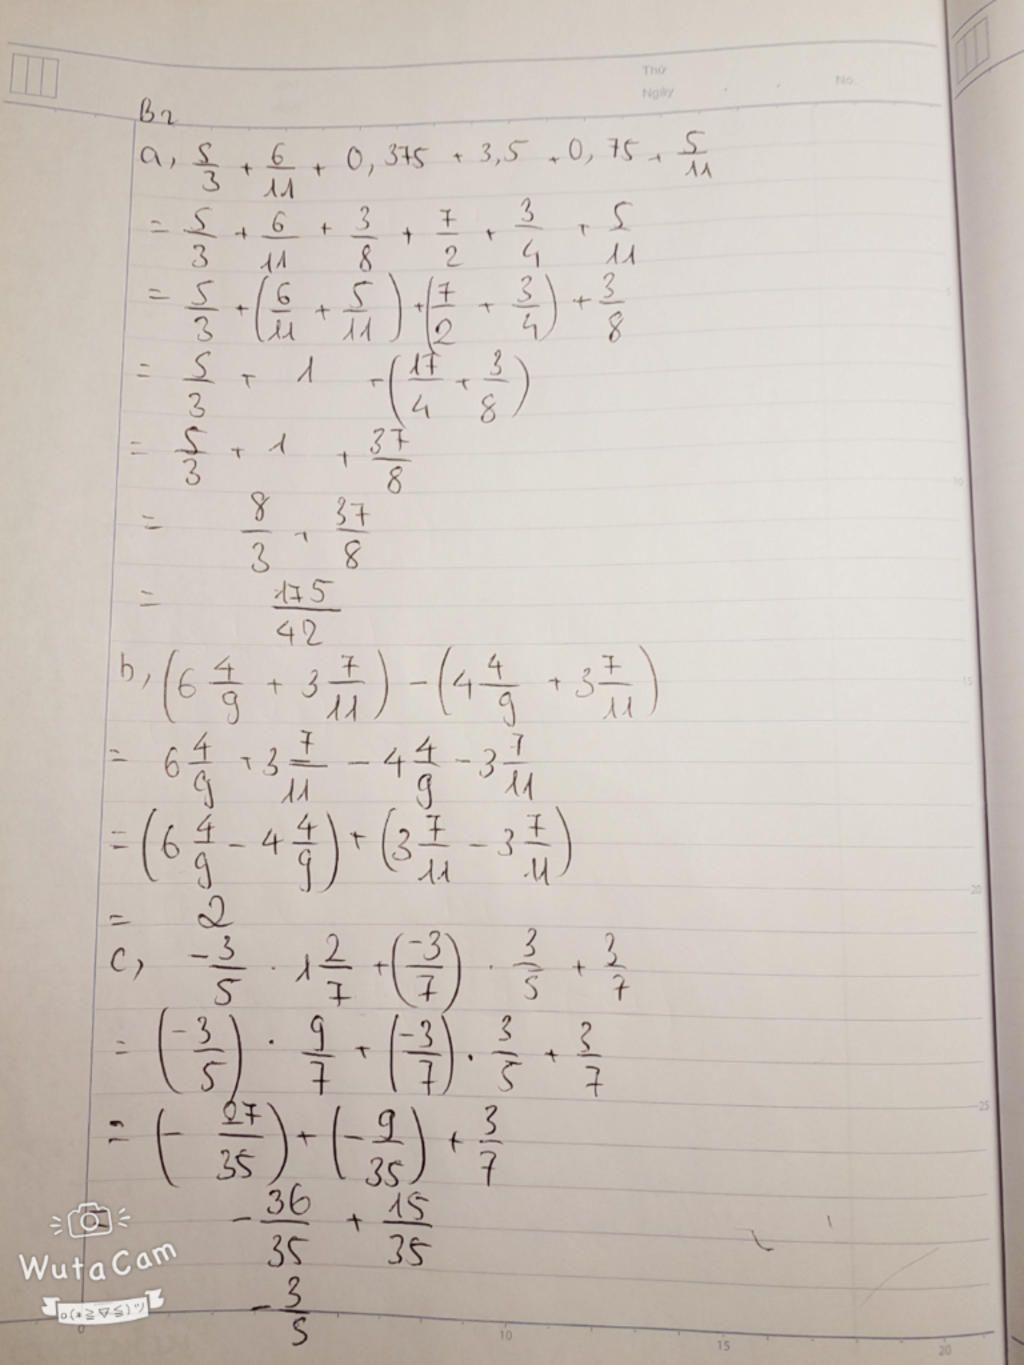 Thứ
Ngày
No.
B2
a, 5/3 + 6/11 + 0,375 + 3,5 + 0,75 + 5/11
= 5/3 + 6/11 + 3/8 + 7/2 + 3/4 + 5/11
= 5/3 + (6/11 + 5/11) + (7/2 + 3/4) + 3/8
= 5/3 + 1 + (17/4 + 3/8)
= 5/3 + 1 + 37/8
= 8/3 + 37/8
= 175/42
b, (6 4/9 + 3 7/11) - (4 4/9 + 3 7/11)
= 6 4/9 + 3 7/11 - 4 4/9 - 3 7/11
= (6 4/9 - 4 4/9) + (3 7/11 - 3 7/11)
= 2
c, -3/5 . 1 2/7 + (-3/7) . 3/5 + 3/7
= (-3/5) . 9/7 + (-3/7) . 3/5 + 3/7
= (- 27/35) + (- 9/35) + 3/7
- 36/35 + 15/35
- 3/5
WutaCam
o(*≧▽≦)ツ
5
10
15
20
25
0
10
15
20